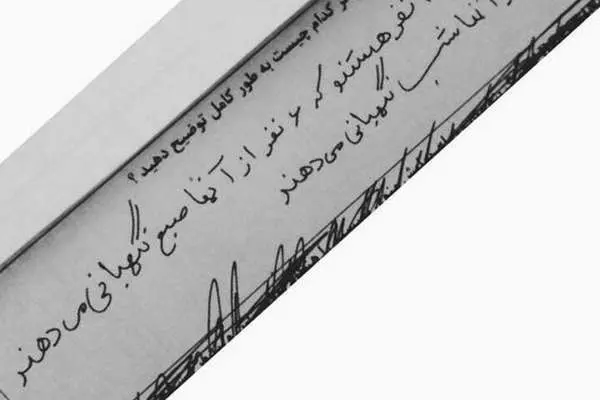 کدام چیست به طور کامل توضیح دهید؟
نفر هستند که ۶ نفر از آنها صبح نگهبانی می‌دهند
شب نگهبانی می‌دهند